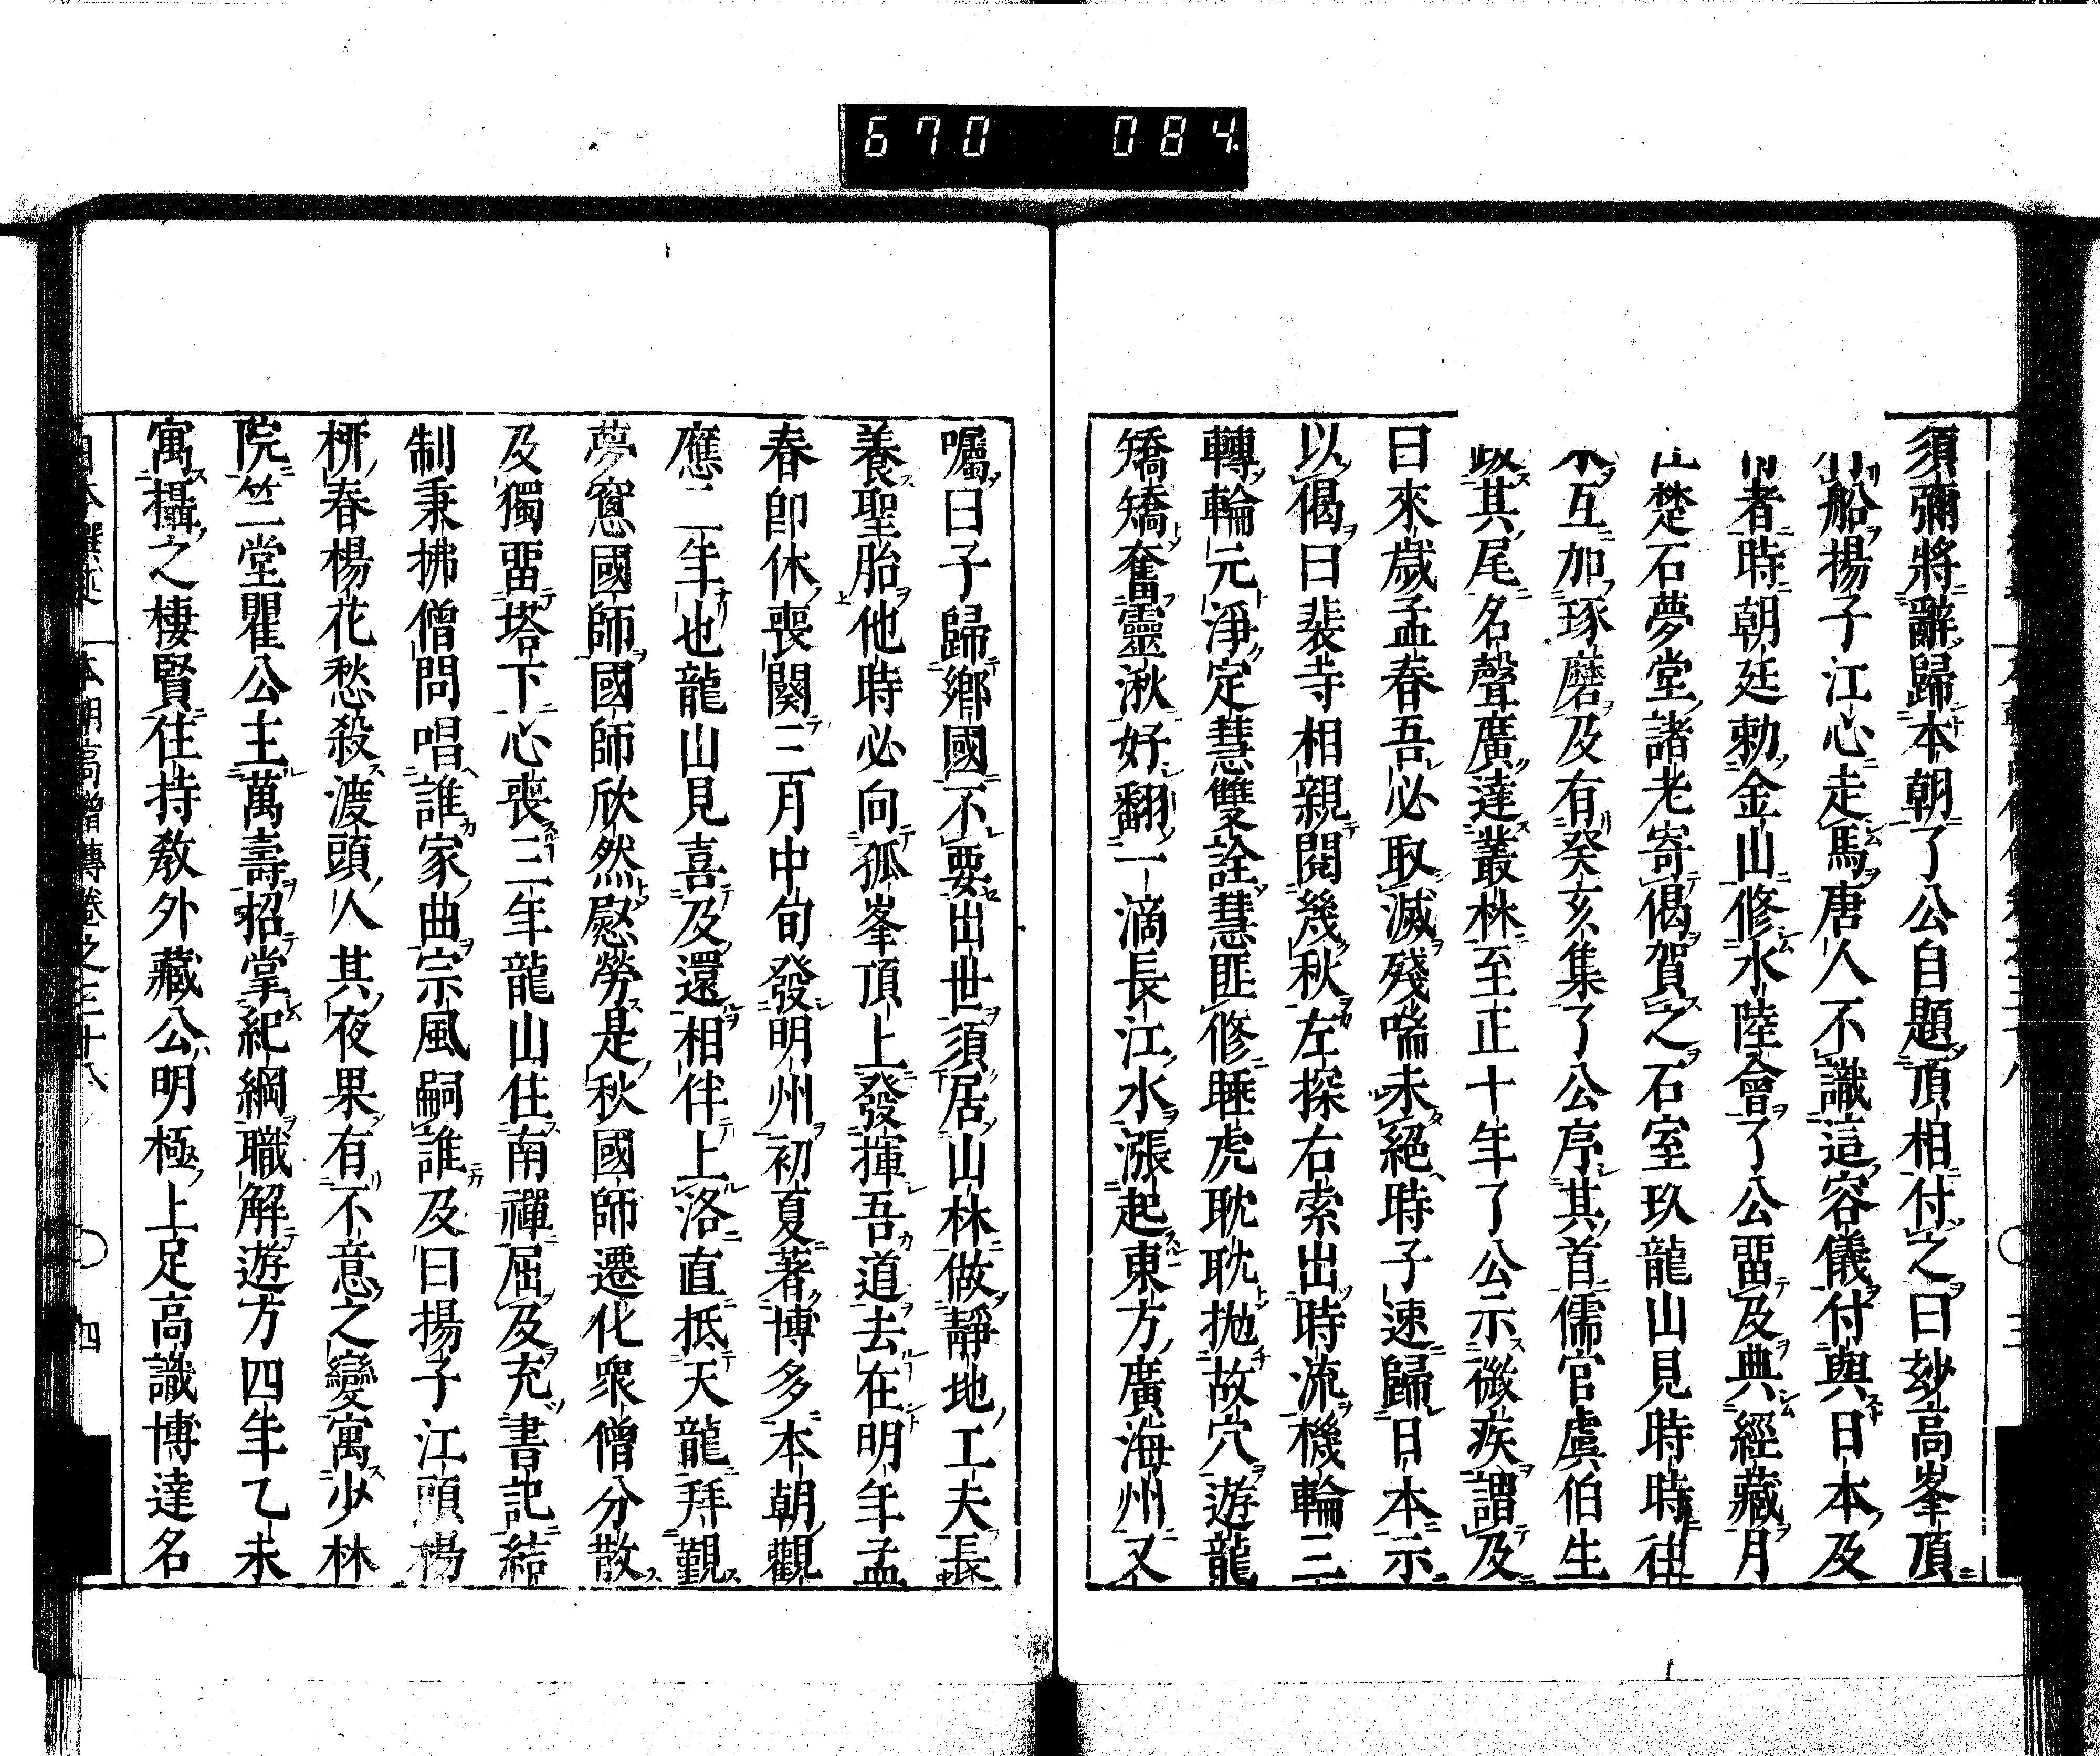 670 084
須彌將辭歸本朝了公自題頂相付之曰玅高峯頂
船揚子江心走馬唐人不識這容儀付與日本及
者時朝廷勅金山修水陸會了公畱及典經藏月
楚石夢堂諸老寄偈賀之石室玖龍山見時時往
互加琢磨及有癸亥集了公序其首儒官虞伯生
其尾名聲廣達叢林至正十年了公示微疾謂及
曰來歳孟春吾必取滅殘喘未絕時子速歸日本示
以偈曰裴寺相親閱幾秋左探右索出時流機輪三
轉輪元淨定慧雙詮慧匪修睡虎耽耽抛故穴遊龍
矯矯奮靈湫好翻一滴長江水漲起東方廣海州又
囑曰子歸鄉國不要出世須居山林做靜地工夫長
養聖胎他時必向孤峯頂上發揮吾道去在明年孟
春卽休喪闋三月中旬發明州初夏著博多本朝觀
應二年也龍山見喜及還相伴上洛直抵天龍拜覲
夢窻國師國師欣然慰勞是秋國師遷化衆僧分散
及獨畱塔下心喪三年龍山住南禪屈及充書記結
制秉拂僧問唱誰家曲宗風嗣誰及曰揚子江頭楊
柳春楊花愁殺渡頭人其夜果有不意之變寓少林
院竺堂瞿公主萬壽招掌紀綱職解遊方四年乙未
寓攝之棲賢住持敎外藏公明極上足高識博達名
日本撰述 本朝高僧傳卷之三十八 四